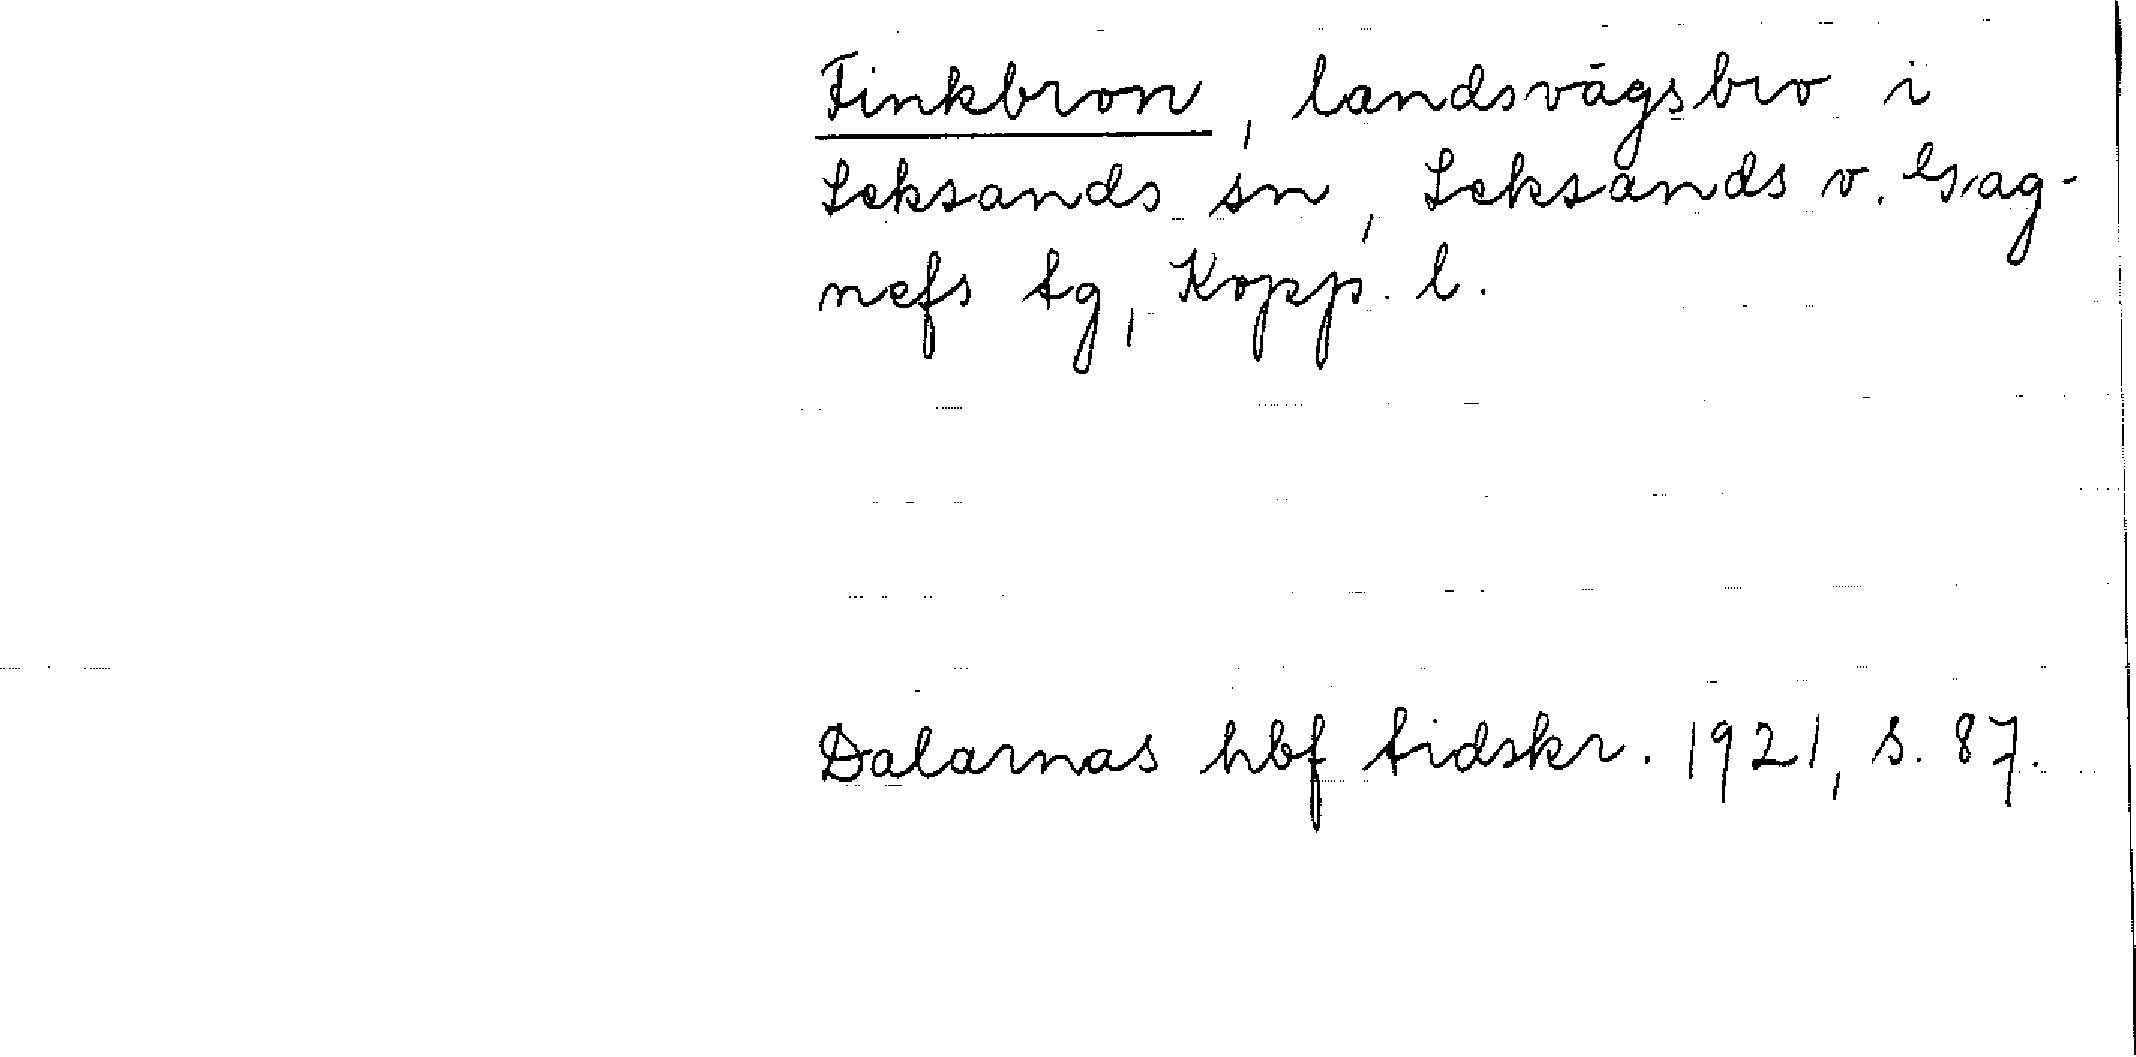 Finkbron, landsvägsbro i
Leksands sn, Leksands v. Gag-
nefs tg, Kopp. l.
Dalarnas hbf tidskr. 1921, s. 87.